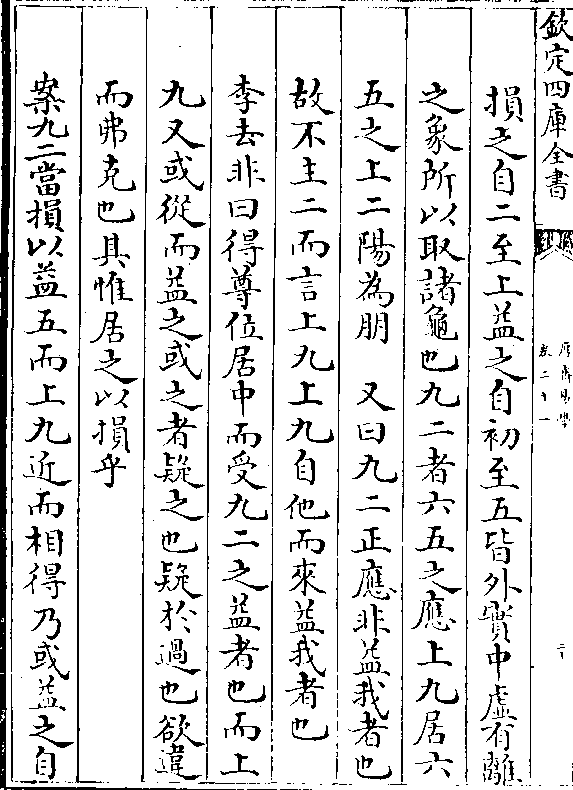 欽定四庫全書
厚齋易學
卷二十一
二十
損之自二至上益之自初至五皆外實中虛有離
之象所以取諸龜也九二者六五之應上九居六
五之上二陽為朋　又曰九二正應非益我者也
故不主二而言上九上九自他而來益我者也
李去非曰得尊位居中而受九二之益者也而上
九又或從而益之或之者疑之也疑於過也欲違
而弗克也其惟居之以損乎
案九二當損以益五而上九近而相得乃或益之自